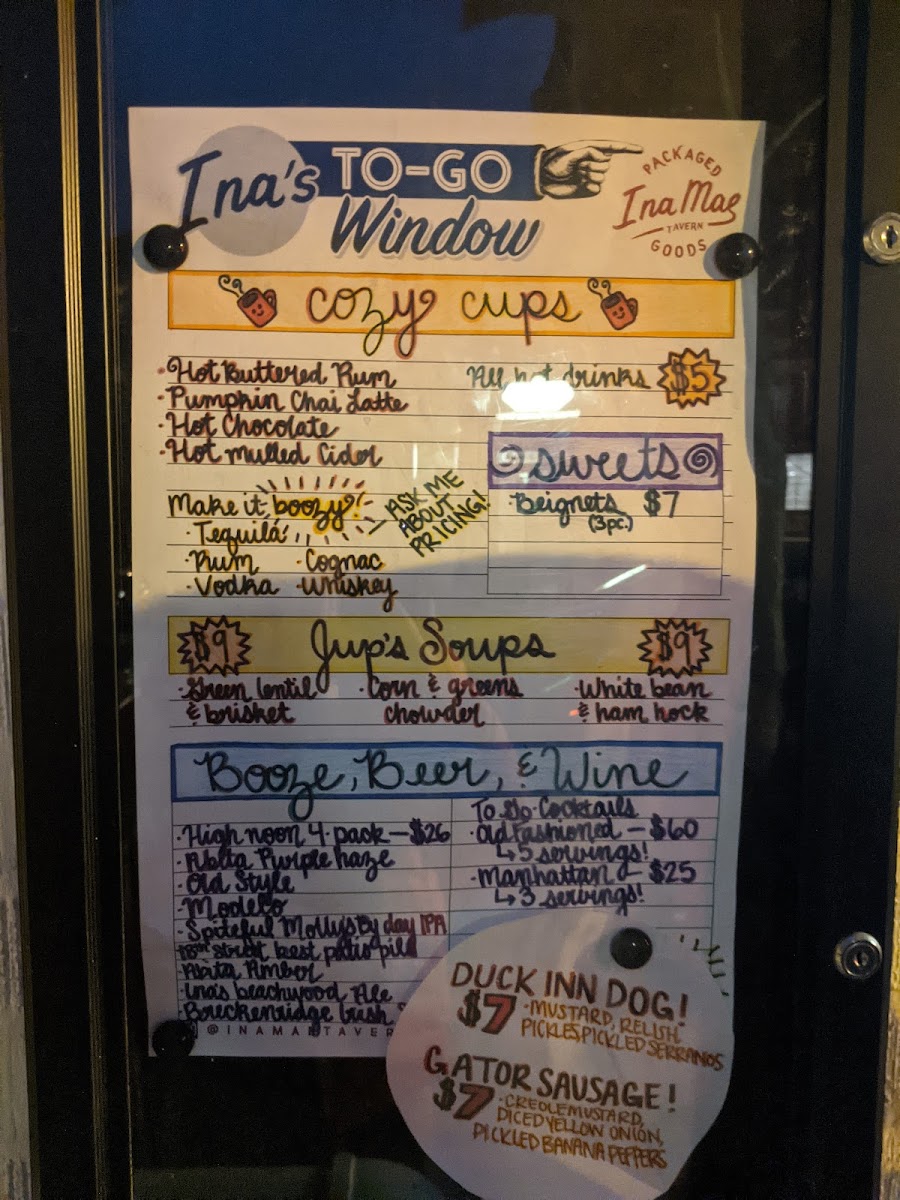 Ina's TO-GO
Window
PACKAGED
Ina Mae
TAVERN
GOODS
cozy cups
·Hot Buttered Rum
·Pumpkin Chai Latte
·Hot Chocolate
·Hot mulled Cider
All hot drinks $5
Make it boozy!
·Tequila
·Rum ·Cognac
·Vodka ·Whiskey
ASK ME
ABOUT
PRICING!
sweets
·Beignets $7
(3pc.)
$9 Jup's Soups $9
·Green lentil
& brisket
·Corn & greens
chowder
·White bean
& ham hock
Booze, Beer, & Wine
·High noon 4-pack—$26
·Abita Purple haze
·Old Style
·Modelo
·Spiteful Molly's By day IPA
18th Street best patio pils
·Abita Amber
·Ina's beachwood Ale
·Breckenridge Irish
@INAMAETAVER
To Go Cocktails
·Old Fashioned — $60
↳5 servings!
·Manhattan — $25
↳3 servings!
DUCK INN DOG!
$7 ·MUSTARD, RELISH
PICKLES, PICKLED SERRANOS
GATOR SAUSAGE!
$7 ·CREOLE MUSTARD,
DICED YELLOW ONION,
PICKLED BANANA PEPPERS